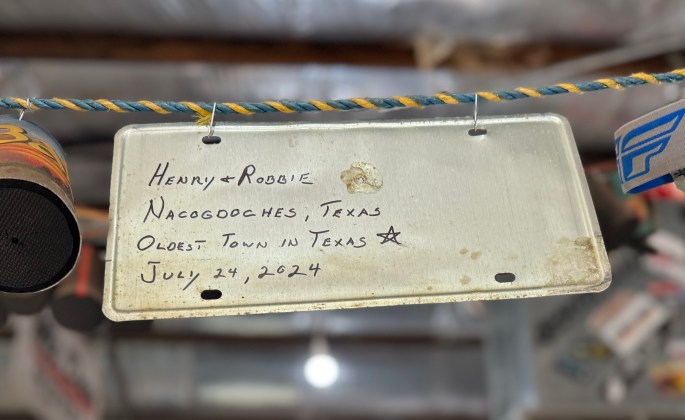 HENRY & ROBBIE
NACOGDOCHES, TEXAS
OLDEST TOWN IN TEXAS ☆
JULY 24, 2024